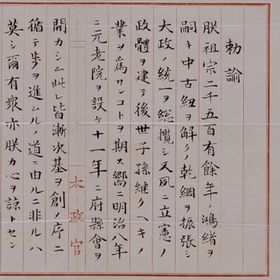 勅諭
朕祖宗二千五百有餘年ノ鴻緒ヲ
嗣キ中古紐ヲ解クノ乾綱ヲ振張シ
大政ノ統一ヲ總攬シ又夙ニ立憲ノ
政體ヲ建テ後世子孫継クヘキノ
業ヲ為サンコトヲ期ス嚮ニ明治八年
ニ元老院ヲ設ケ十一年ニ府縣會ヲ
開カシム此レ皆漸次基ヲ創メ序ニ
循テ歩ヲ進ムルノ道ニ由ルニ非ルハ
莫シ爾有衆亦朕カ心ヲ諒トセン
太政官